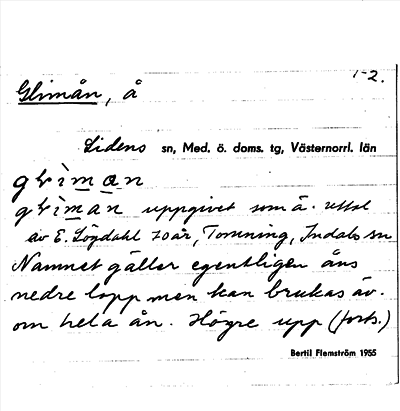 1-2.
Glimån, å
Lidens sn, Med. ö. doms. tg, Västernorrl. län
glìman
glìman uppgivet som ä. uttal
av E. Lögdahl 70 år, Tomming, Indals sn
Namnet gäller egentligen åns
nedre lopp men kan brukas äv.
om hela ån. Högre upp (forts.)
Bertil Flemström 1955